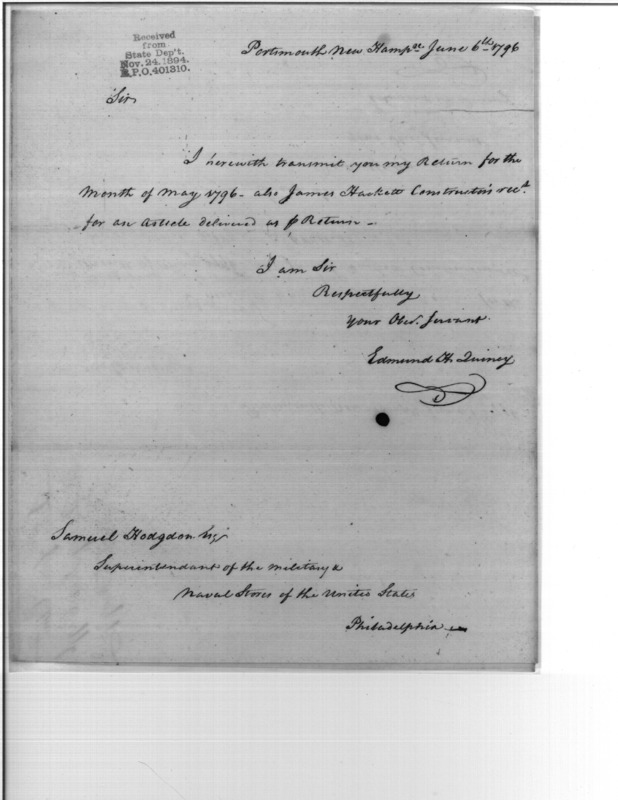 Received
from
State Dep't.
Nov. 24. 1894.
R.P.O. 401310.
Portsmouth New Hampre. June 6th 1796
Sir
I herewith transmit you my Return for the
Month of May 1796 - also James Hackett Constructors rect.
for an article delivered as p Return -
I am Sir
Respectfully
Your Obed. Servant
Edmund H. Quincy
Samuel Hodgdon Esq
Superintendant of the military &
Naval Stores of the United States
Philadelphia